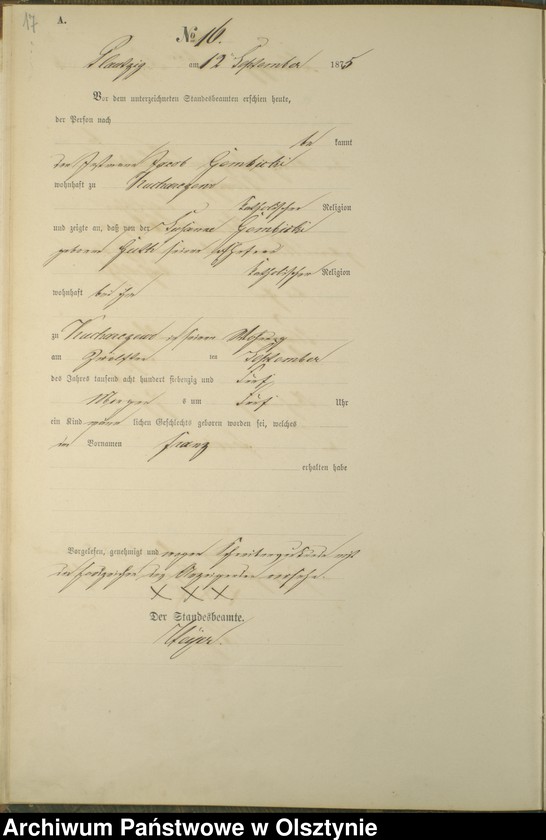 17
A.
№ 16.
Plautzig am 12 September 1875
Vor dem unterzeichneten Standesbeamten erschien heute,
der Person nach
be kannt
der Jacob Gembicki
wohnhaft zu
katholischer Religion
und zeigte an, daß von der Susanna Gembicki
geboren seiner Ehefrau
katholischer Religion
wohnhaft bei ihm
zu in seiner Wohnung
am Zwölften ten September
des Jahrs tausend acht hundert siebenzig und fünf
Morgen s um fünf Uhr
ein Kind männ lichen Geschlechts geboren worden sei, welches
den Vornamen Franz
erhalten habe
Vorgelesen, genehmigt und wegen Schreibensunkunde mit
den Handzeichen des Anzeigenden versehen.
X X X
Der Standesbeamte.
Archiwum Państwowe w Olsztynie